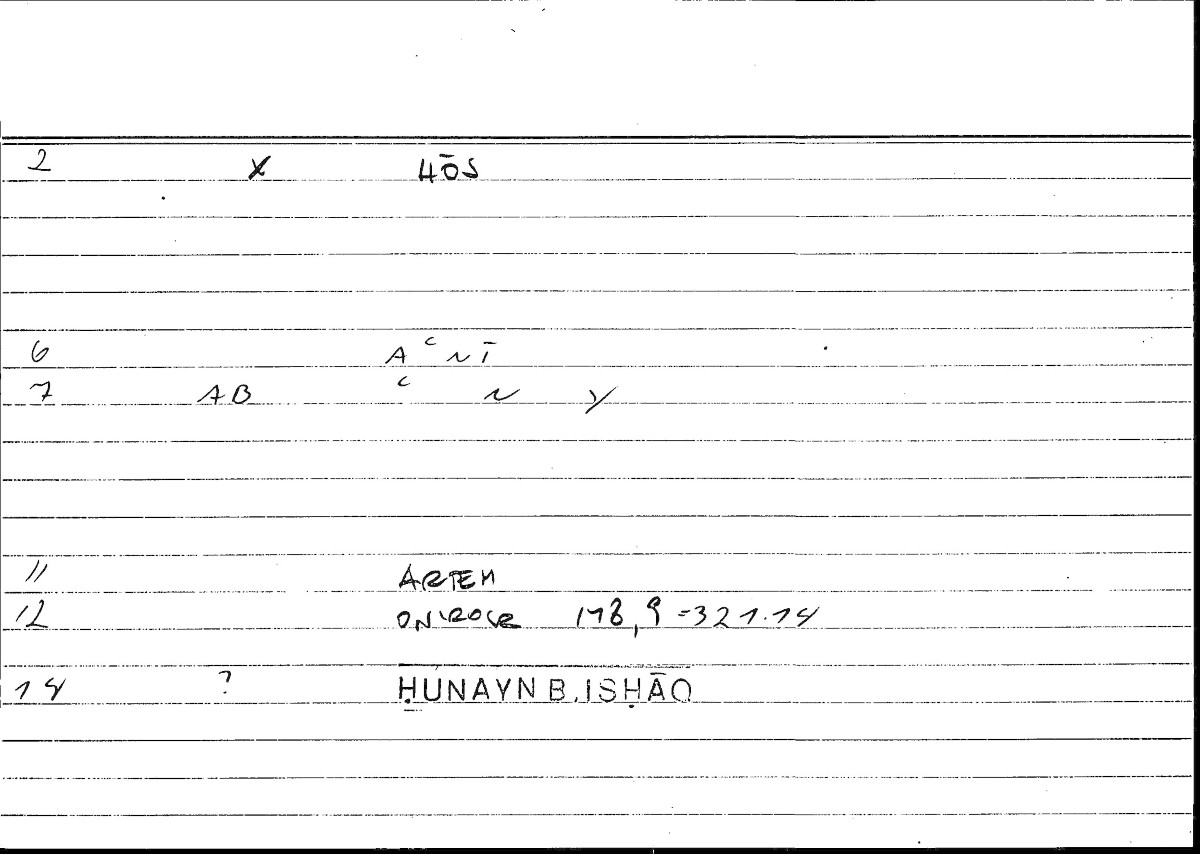 2 x 4ōs
6 A ʿ N ī
7 AB ʿ N Y
11 ARTEM
12 ONIROCR 178,9 = 321.14
14 ? ḤUNAYN B. ISḤĀQ